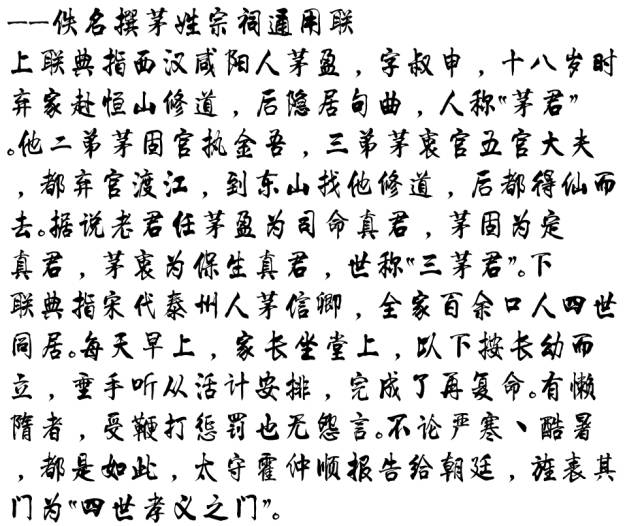 ——佚名撰茅姓宗祠通用联
上联典指西汉咸阳人茅盈，字叔申，十八岁时
弃家赴恒山修道，后隐居句曲，人称“茅君”
。他二弟茅固官执金吾，三弟茅衷官五官大夫
，都弃官渡江，到东山找他修道，后都得仙而
去。据说老君任茅盈为司命真君，茅固为定
真君，茅衷为保生真君，世称“三茅君”。下
联典指宋代泰州人茅信卿，全家百余口人四世
同居。每天早上，家长坐堂上，以下按长幼而
立，垂手听从活计安排，完成了再复命。有懒
隋者，受鞭打惩罚也无怨言。不论严寒、酷暑
，都是如此，太守霍仲顺报告给朝廷，旌表其
门为“四世孝义之门”。